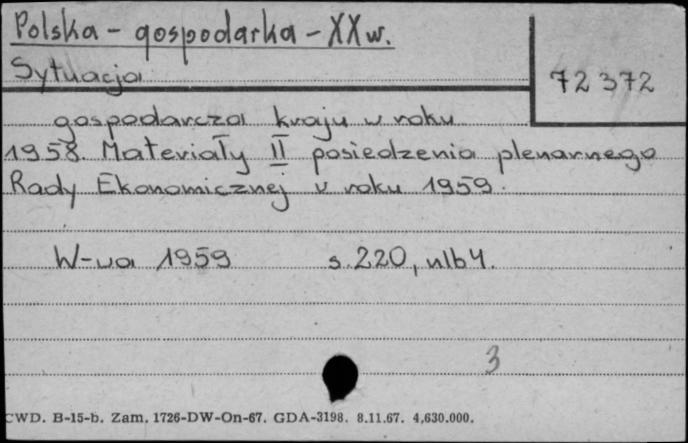 Polska - gospodarka - XX w.
Sytuacja
72 372
gospodarcza kraju w roku
1958. Materiały II posiedzenia plenarnego
Rady Ekonomicznej w roku 1959.
W-wa 1959 s. 220, nlb 4.
3
CWD. B-15-b. Zam. 1726-DW-On-67. GDA-3198. 8.11.67. 4,630.000.